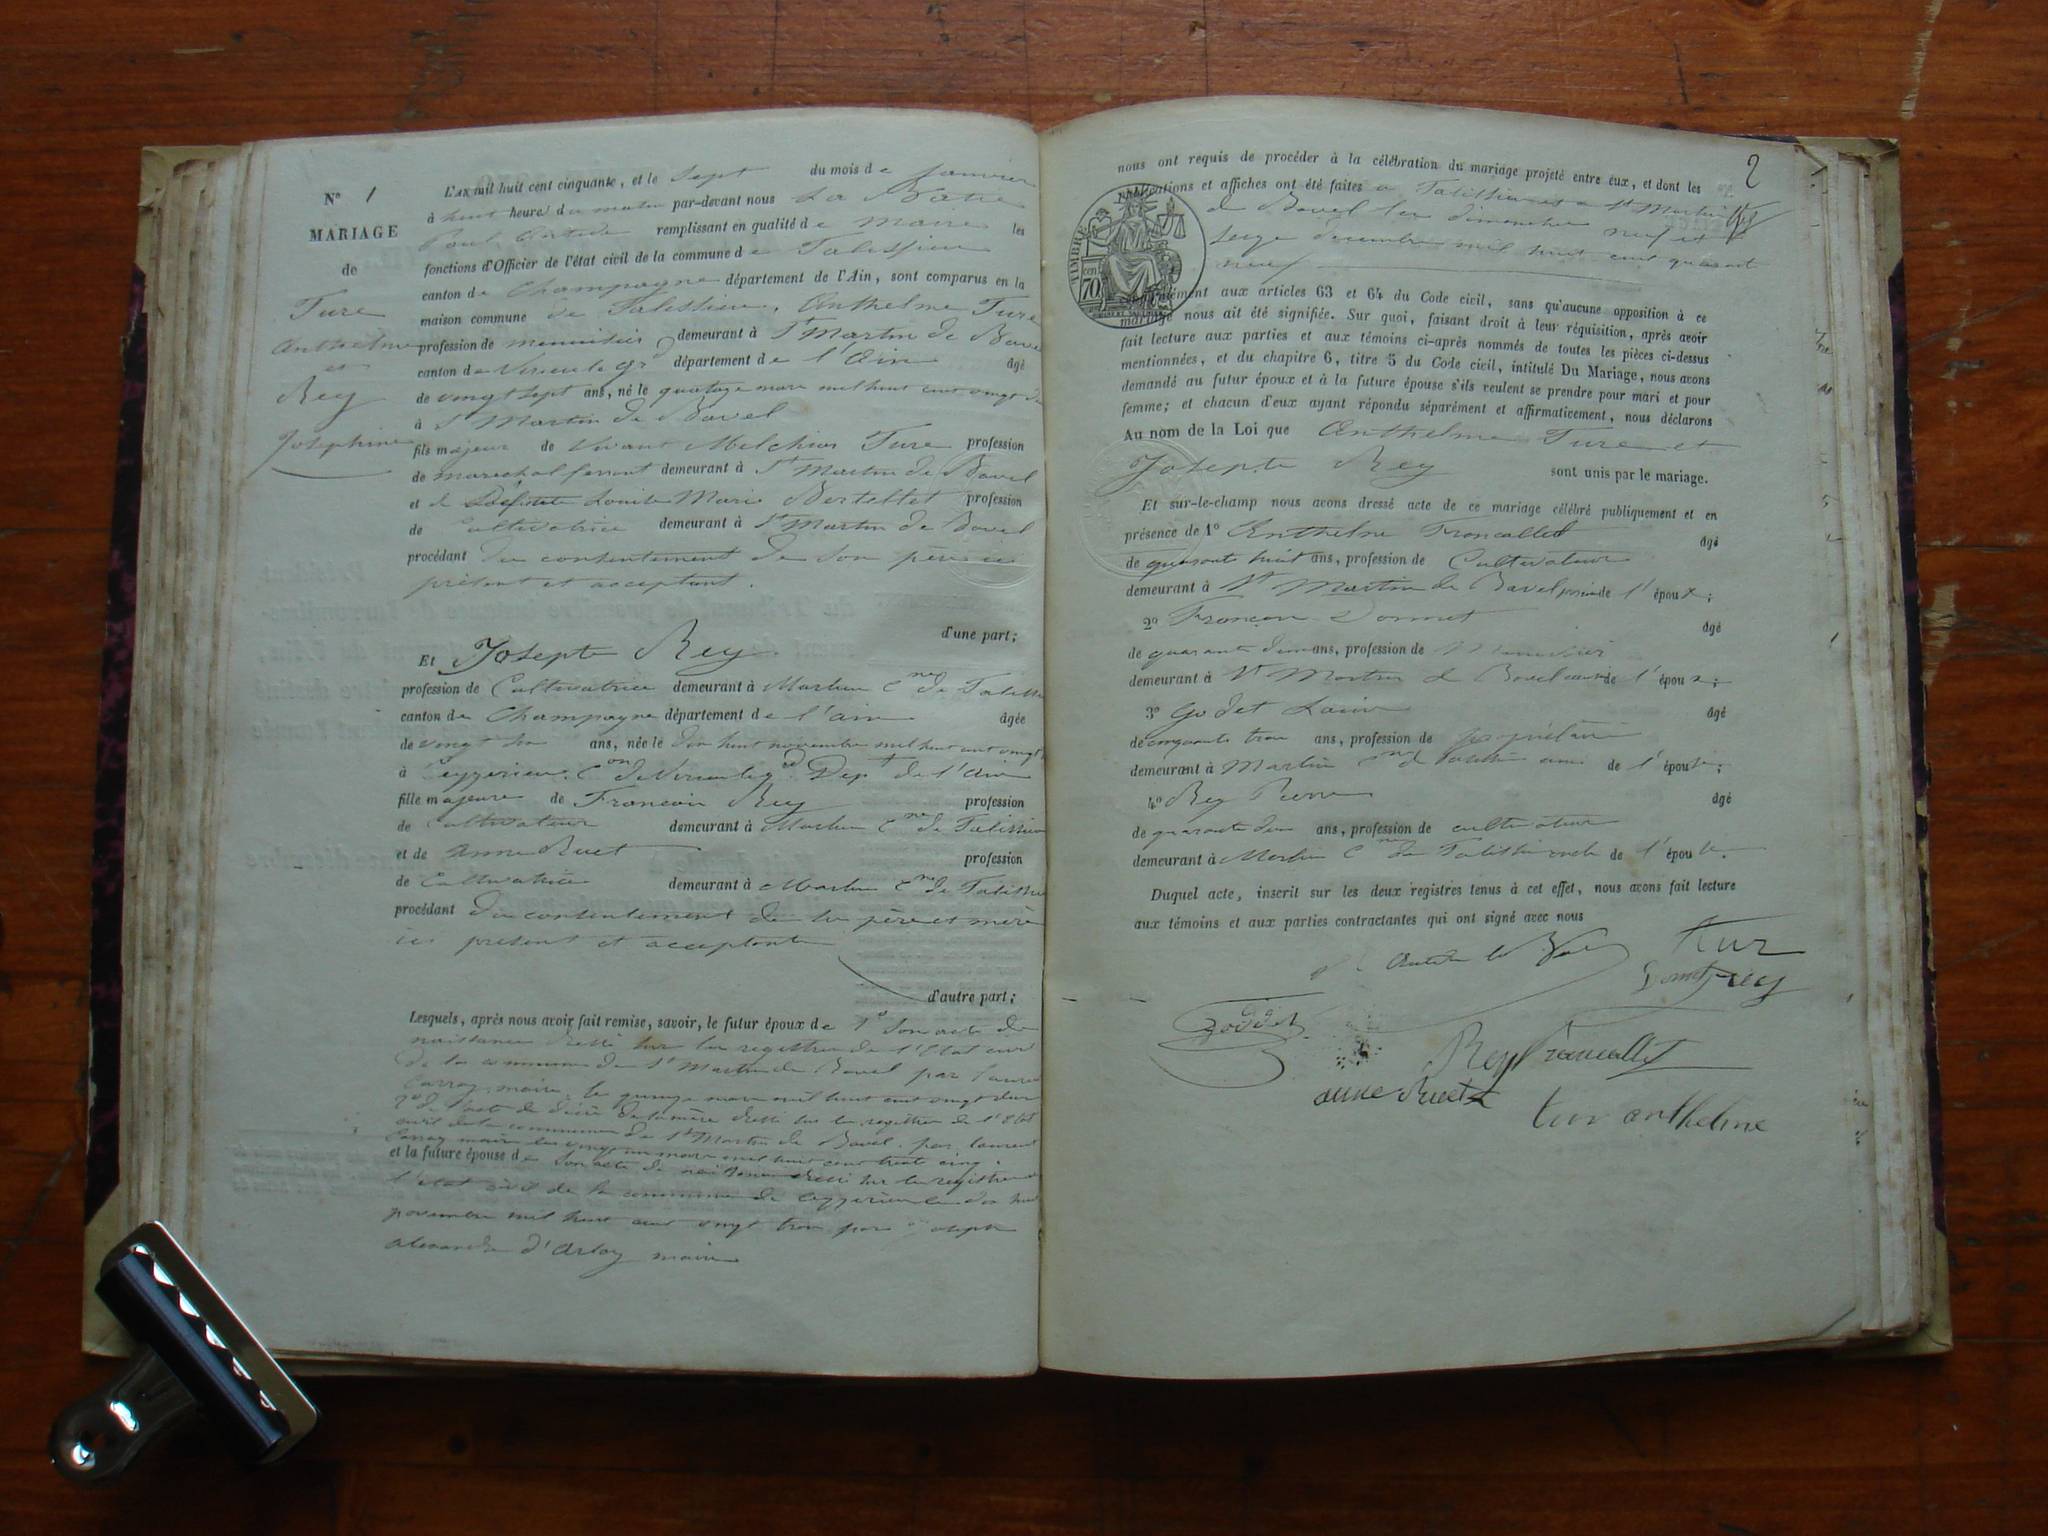 N° 1
MARIAGE
de
Ture
Anthelme
et
Rey
Josephine
L'AN mil huit cent cinquante, et le sept du mois de janvier
à huit heure du matin par-devant nous La Batie
Paul remplissant en qualité de Maire les
fonctions d'Officier de l'état civil de la commune de Talissieu
canton de Champagne département de l'Ain, sont comparus en la
maison commune de Talissieu, Anthelme Ture
profession de menuisier demeurant à St Martin de Bavel
canton de Virieu le gd département de l'Ain âgé
de vingt sept ans, né le quatorze mars mil huit cent vingt
à St Martin de Bavel
fils majeur de vivant Melchior Ture profession
de marechal ferrant demeurant à St Martin de Bavel
et de Defunte Louise Marie Bertellet profession
de Cultivatrice demeurant à St Martin de Bavel
procédant du consentement de son père ici
présent et acceptant.
d'une part;
Et Josepte Rey
profession de Cultivatrice demeurant à Maslin Cne de Talissieu
canton de Champagne département de l'ain âgée
de vingt six ans, née le dix huit novembre mil huit cent vingt
à Ceyzerieu Con de Virieu le gd Dept de l'Ain
fille majeure de Francoin Rey profession
de Cultivateur demeurant à Maslin Cne de Talissieu
et de Anne Ruet profession
de Cultivatrice demeurant à Maslin Cne de Talissieu
procédant du consentement de ses père et mère
ici présent et acceptants
d'autre part;
Lesquels, après nous avoir fait remise, savoir, le futur époux de 1° Son acte de
naissance dressé sur les registres de l'Etat civil
de la commune de St Martin de Bavel par Laurent
Carray maire, le quinze mars mil huit cent vingt deux
2° de l'acte de décès de sa mère dressé sur les registres de l'Etat
civil de la commune de St Martin de Bavel par Laurent
Carray maire le vingt un mars mil huit cent trente cinq.
et la future épouse de Son acte de naissance dressé sur les registres de
l'état civil de la commune de Ceyzerieu le dix huit
novembre mil huit cent vingt trois par Joseph
Alexandre d'Arloz maire
2
nous ont requis de procéder à la célébration du mariage projeté entre eux, et dont les
publications et affiches ont été faites à Talissieu et à St Martin
de Bavel les dimanches neuf et
seize decembre mil huit cent quarante
neuf
TIMBRE
70
conformément aux articles 63 et 64 du Code civil, sans qu'aucune opposition à ce
mariage nous ait été signifiée. Sur quoi, faisant droit à leur réquisition, après avoir
fait lecture aux parties et aux témoins ci-après nommés de toutes les pièces ci-dessus
mentionnées, et du chapitre 6, titre 5 du Code civil, intitulé Du Mariage, nous avons
demandé au futur époux et à la future épouse s'ils veulent se prendre pour mari et pour
femme; et chacun d'eux ayant répondu séparément et affirmaticement, nous déclarons
Au nom de la Loi que Anthelme Ture et
Josepte Rey sont unis par le mariage.
Et sur-le-champ nous avons dressé acte de ce mariage célébré publiquement et en
présence de 1° Anthelme Francallet âgé
de quarante huit ans, profession de Cultivateur
demeurant à St Martin de Bavel de l'époux;
2° Françon Donnet âgé
de quarante deux ans, profession de Menuisier
demeurant à St Martin de Bavel de l'époux;
3° Godet Louis âgé
de cinquante trois ans, profession de propriétaire
demeurant à Maslin Cne de Talissieu ami de l'épouse;
4° Rey Pierre âgé
de quarante deux ans, profession de cultivateur
demeurant à Maslin Cne de Talissieu oncle de l'épouse.
Duquel acte, inscrit sur les deux registres tenus à cet effet, nous avons fait lecture
aux témoins et aux parties contractantes qui ont signé avec nous
tur
Donnet rey
Goddet
Rey francallet
anne Ruet
tur anthelme